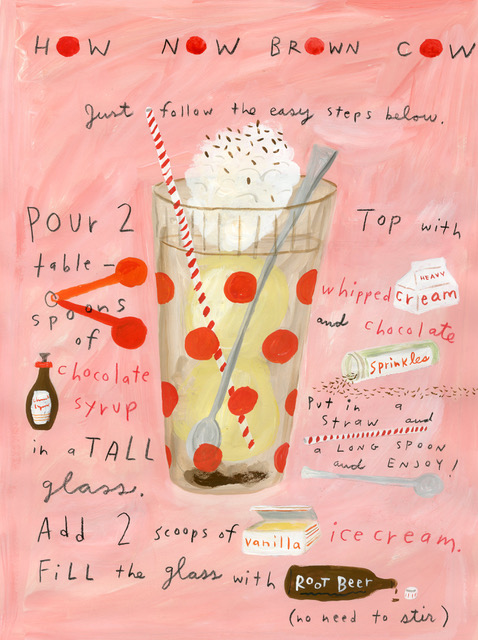 HOW NOW BROWN COW
Just follow the easy steps below.
Pour 2
table-
spoons
of
chocolate
syrup
in a TALL
glass.
Add 2 scoops of vanilla ice cream.
Fill the glass with ROOT BEER
(no need to stir)
Top with
whipped HEAVY cream
and chocolate
Sprinkles
Put in a
straw and
a LONG SPOON
and ENJOY!